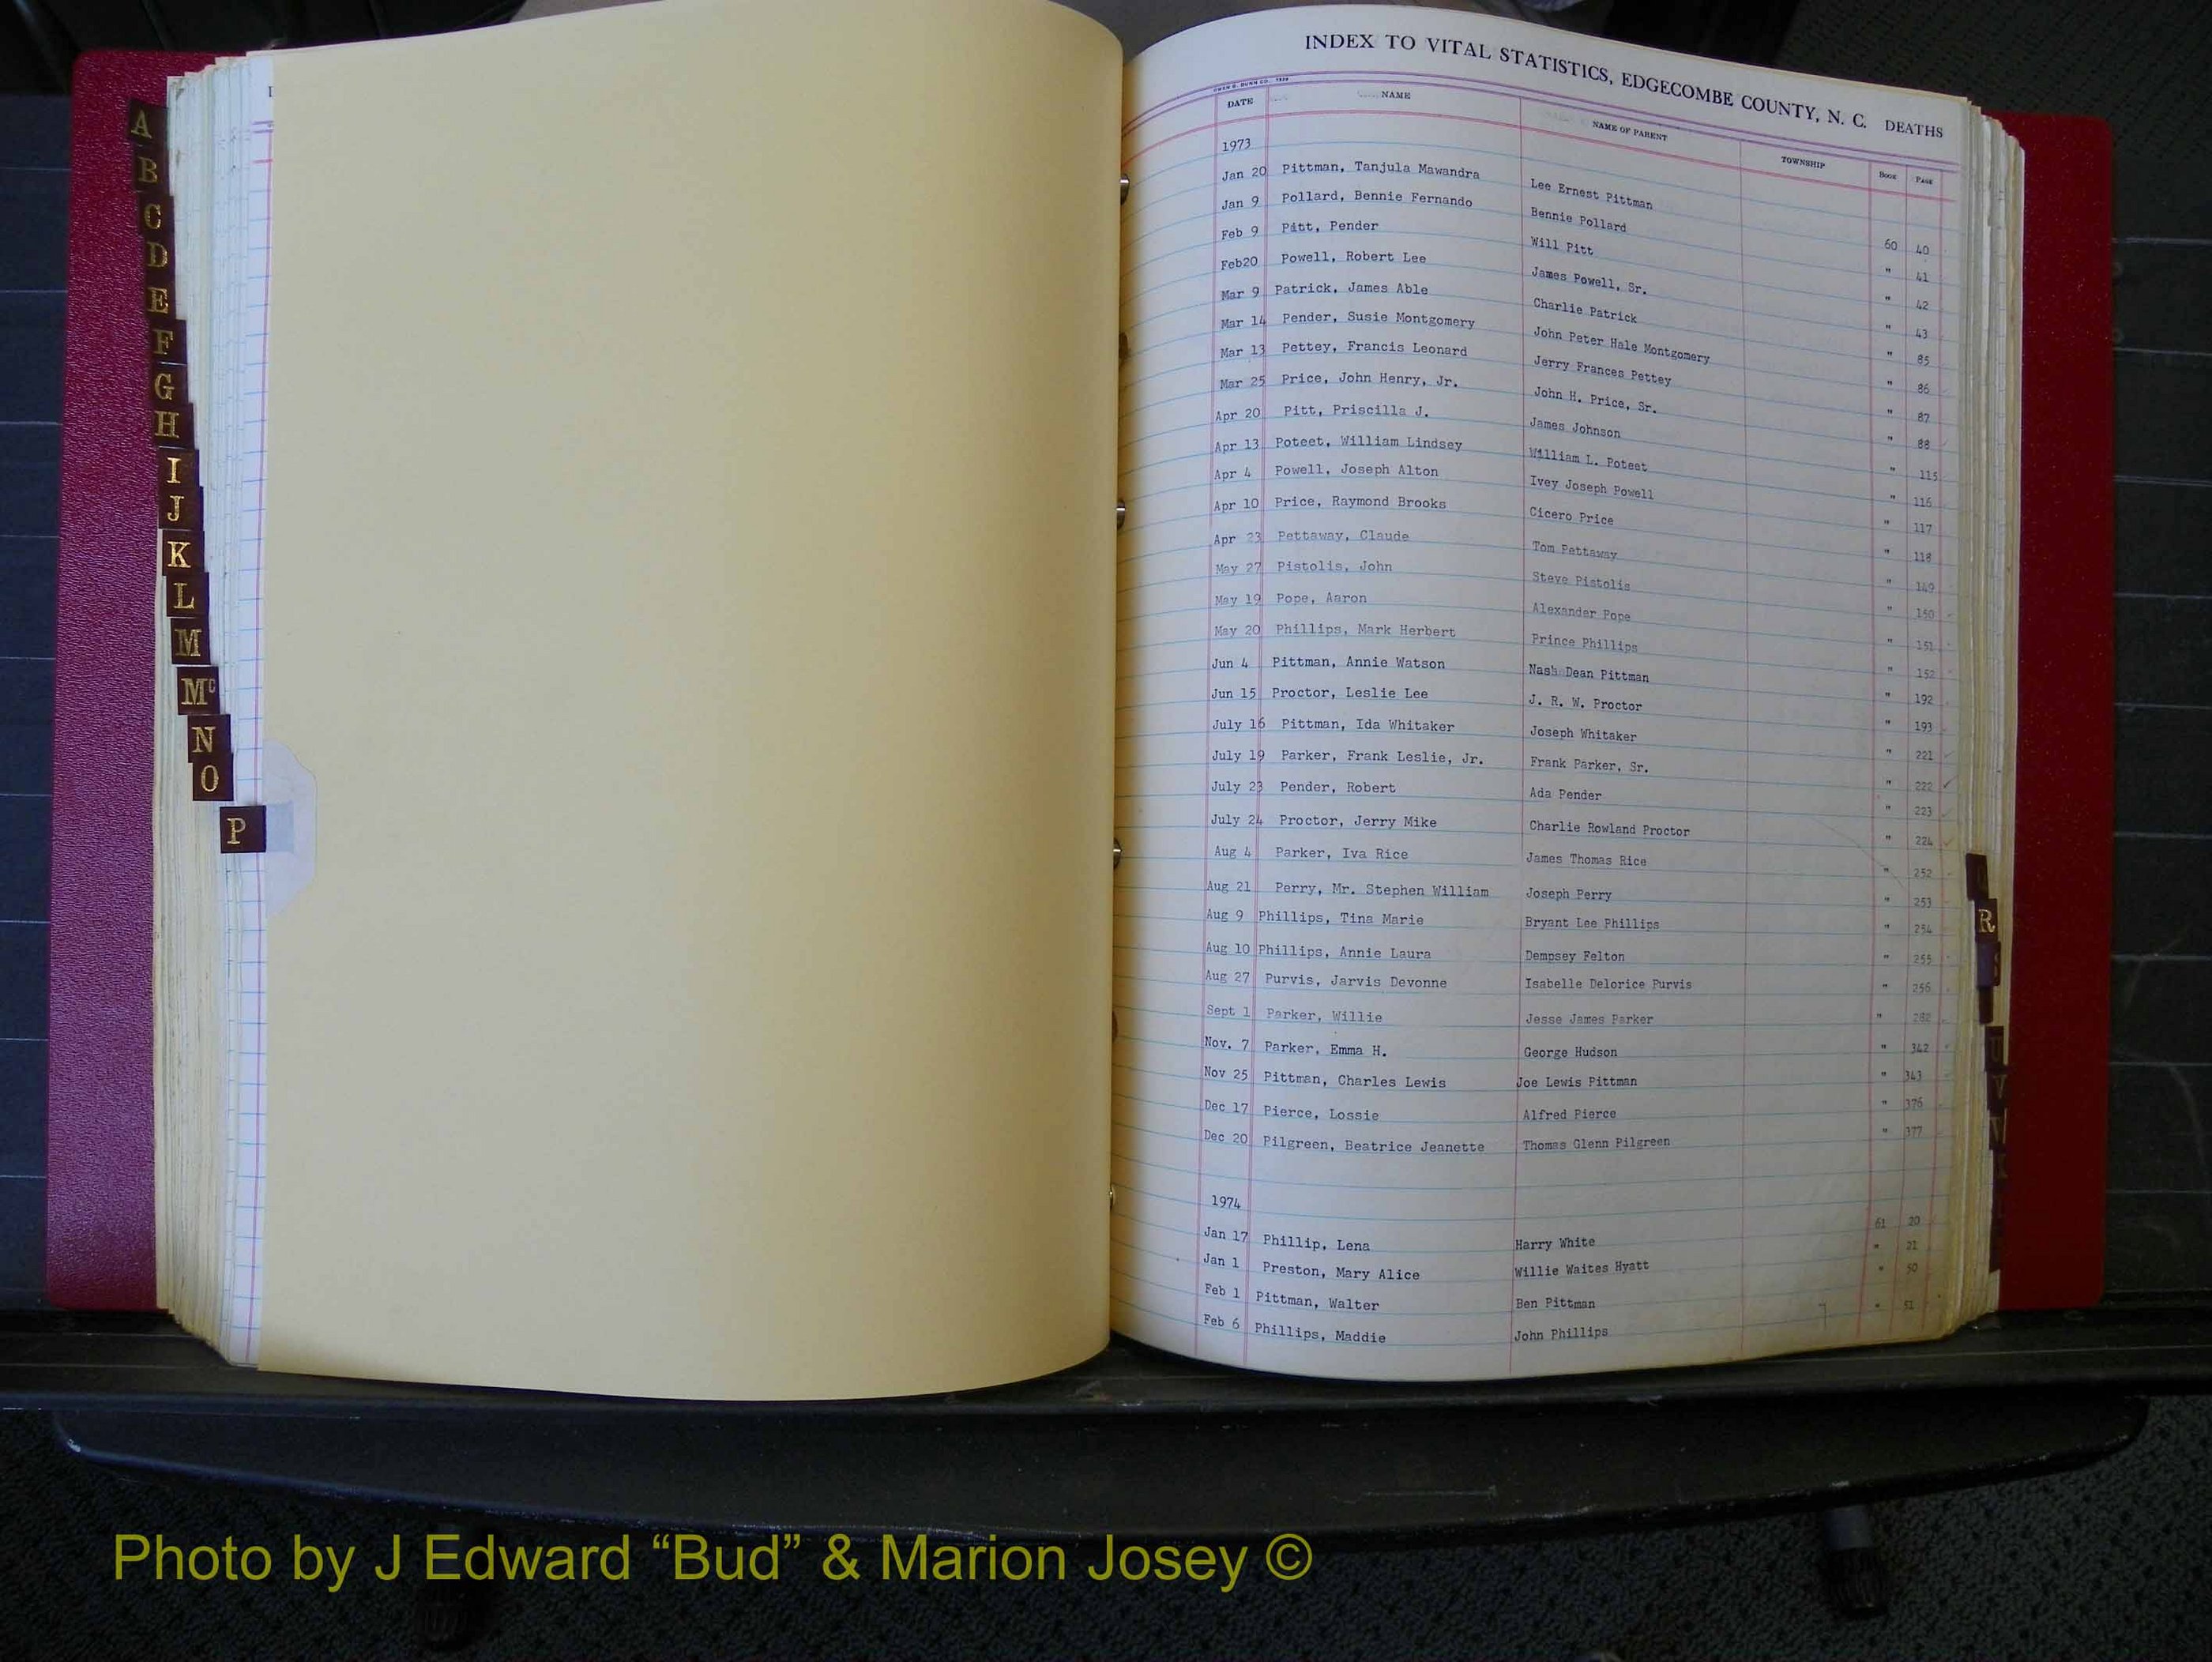 A
B
C
D
E
F
G
H
I
J
K
L
M
Mc
N
O
P
INDEX TO VITAL STATISTICS, EDGECOMBE COUNTY, N. C. DEATHS
DATE NAME NAME OF PARENT TOWNSHIP BOOK PAGE
1973
Jan 20 Pittman, Tanjula Mawandra Lee Ernest Pittman 60 40
Jan 9 Pollard, Bennie Fernando Bennie Pollard " 41
Feb 9 Pitt, Pender Will Pitt " 42
Feb20 Powell, Robert Lee James Powell, Sr. " 43
Mar 9 Patrick, James Able Charlie Patrick " 85
Mar 14 Pender, Susie Montgomery John Peter Hale Montgomery " 86
Mar 13 Pettey, Francis Leonard Jerry Frances Pettey " 87
Mar 25 Price, John Henry, Jr. John H. Price, Sr. " 88
Apr 20 Pitt, Priscilla J. James Johnson " 115
Apr 13 Poteet, William Lindsey William L. Poteet " 116
Apr 4 Powell, Joseph Alton Ivey Joseph Powell " 117
Apr 10 Price, Raymond Brooks Cicero Price " 118
Apr 23 Pettaway, Claude Tom Pettaway " 149
May 27 Pistolis, John Steve Pistolis " 150
May 19 Pope, Aaron Alexander Pope " 151
May 20 Phillips, Mark Herbert Prince Phillips " 152
Jun 4 Pittman, Annie Watson Nash Dean Pittman " 192
Jun 15 Proctor, Leslie Lee J. R. W. Proctor " 193
July 16 Pittman, Ida Whitaker Joseph Whitaker " 221
July 19 Parker, Frank Leslie, Jr. Frank Parker, Sr. " 222
July 23 Pender, Robert Ada Pender " 223
July 24 Proctor, Jerry Mike Charlie Rowland Proctor " 224
Aug 4 Parker, Iva Rice James Thomas Rice " 252
Aug 21 Perry, Mr. Stephen William Joseph Perry " 253
Aug 9 Phillips, Tina Marie Bryant Lee Phillips " 254
Aug 10 Phillips, Annie Laura Dempsey Felton " 255
Aug 27 Purvis, Jarvis Devonne Isabelle Delorice Purvis " 256
Sept 1 Parker, Willie Jesse James Parker " 282
Nov. 7 Parker, Emma H. George Hudson " 342
Nov 25 Pittman, Charles Lewis Joe Lewis Pittman " 343
Dec 17 Pierce, Lossie Alfred Pierce " 376
Dec 20 Pilgreen, Beatrice Jeanette Thomas Glenn Pilgreen " 377
1974
Jan 17 Phillip, Lena Harry White 61 20
Jan 1 Preston, Mary Alice Willie Waites Hyatt " 21
Feb 1 Pittman, Walter Ben Pittman " 50
Feb 6 Phillips, Maddie John Phillips " 51
R
Photo by J Edward “Bud” & Marion Josey ©